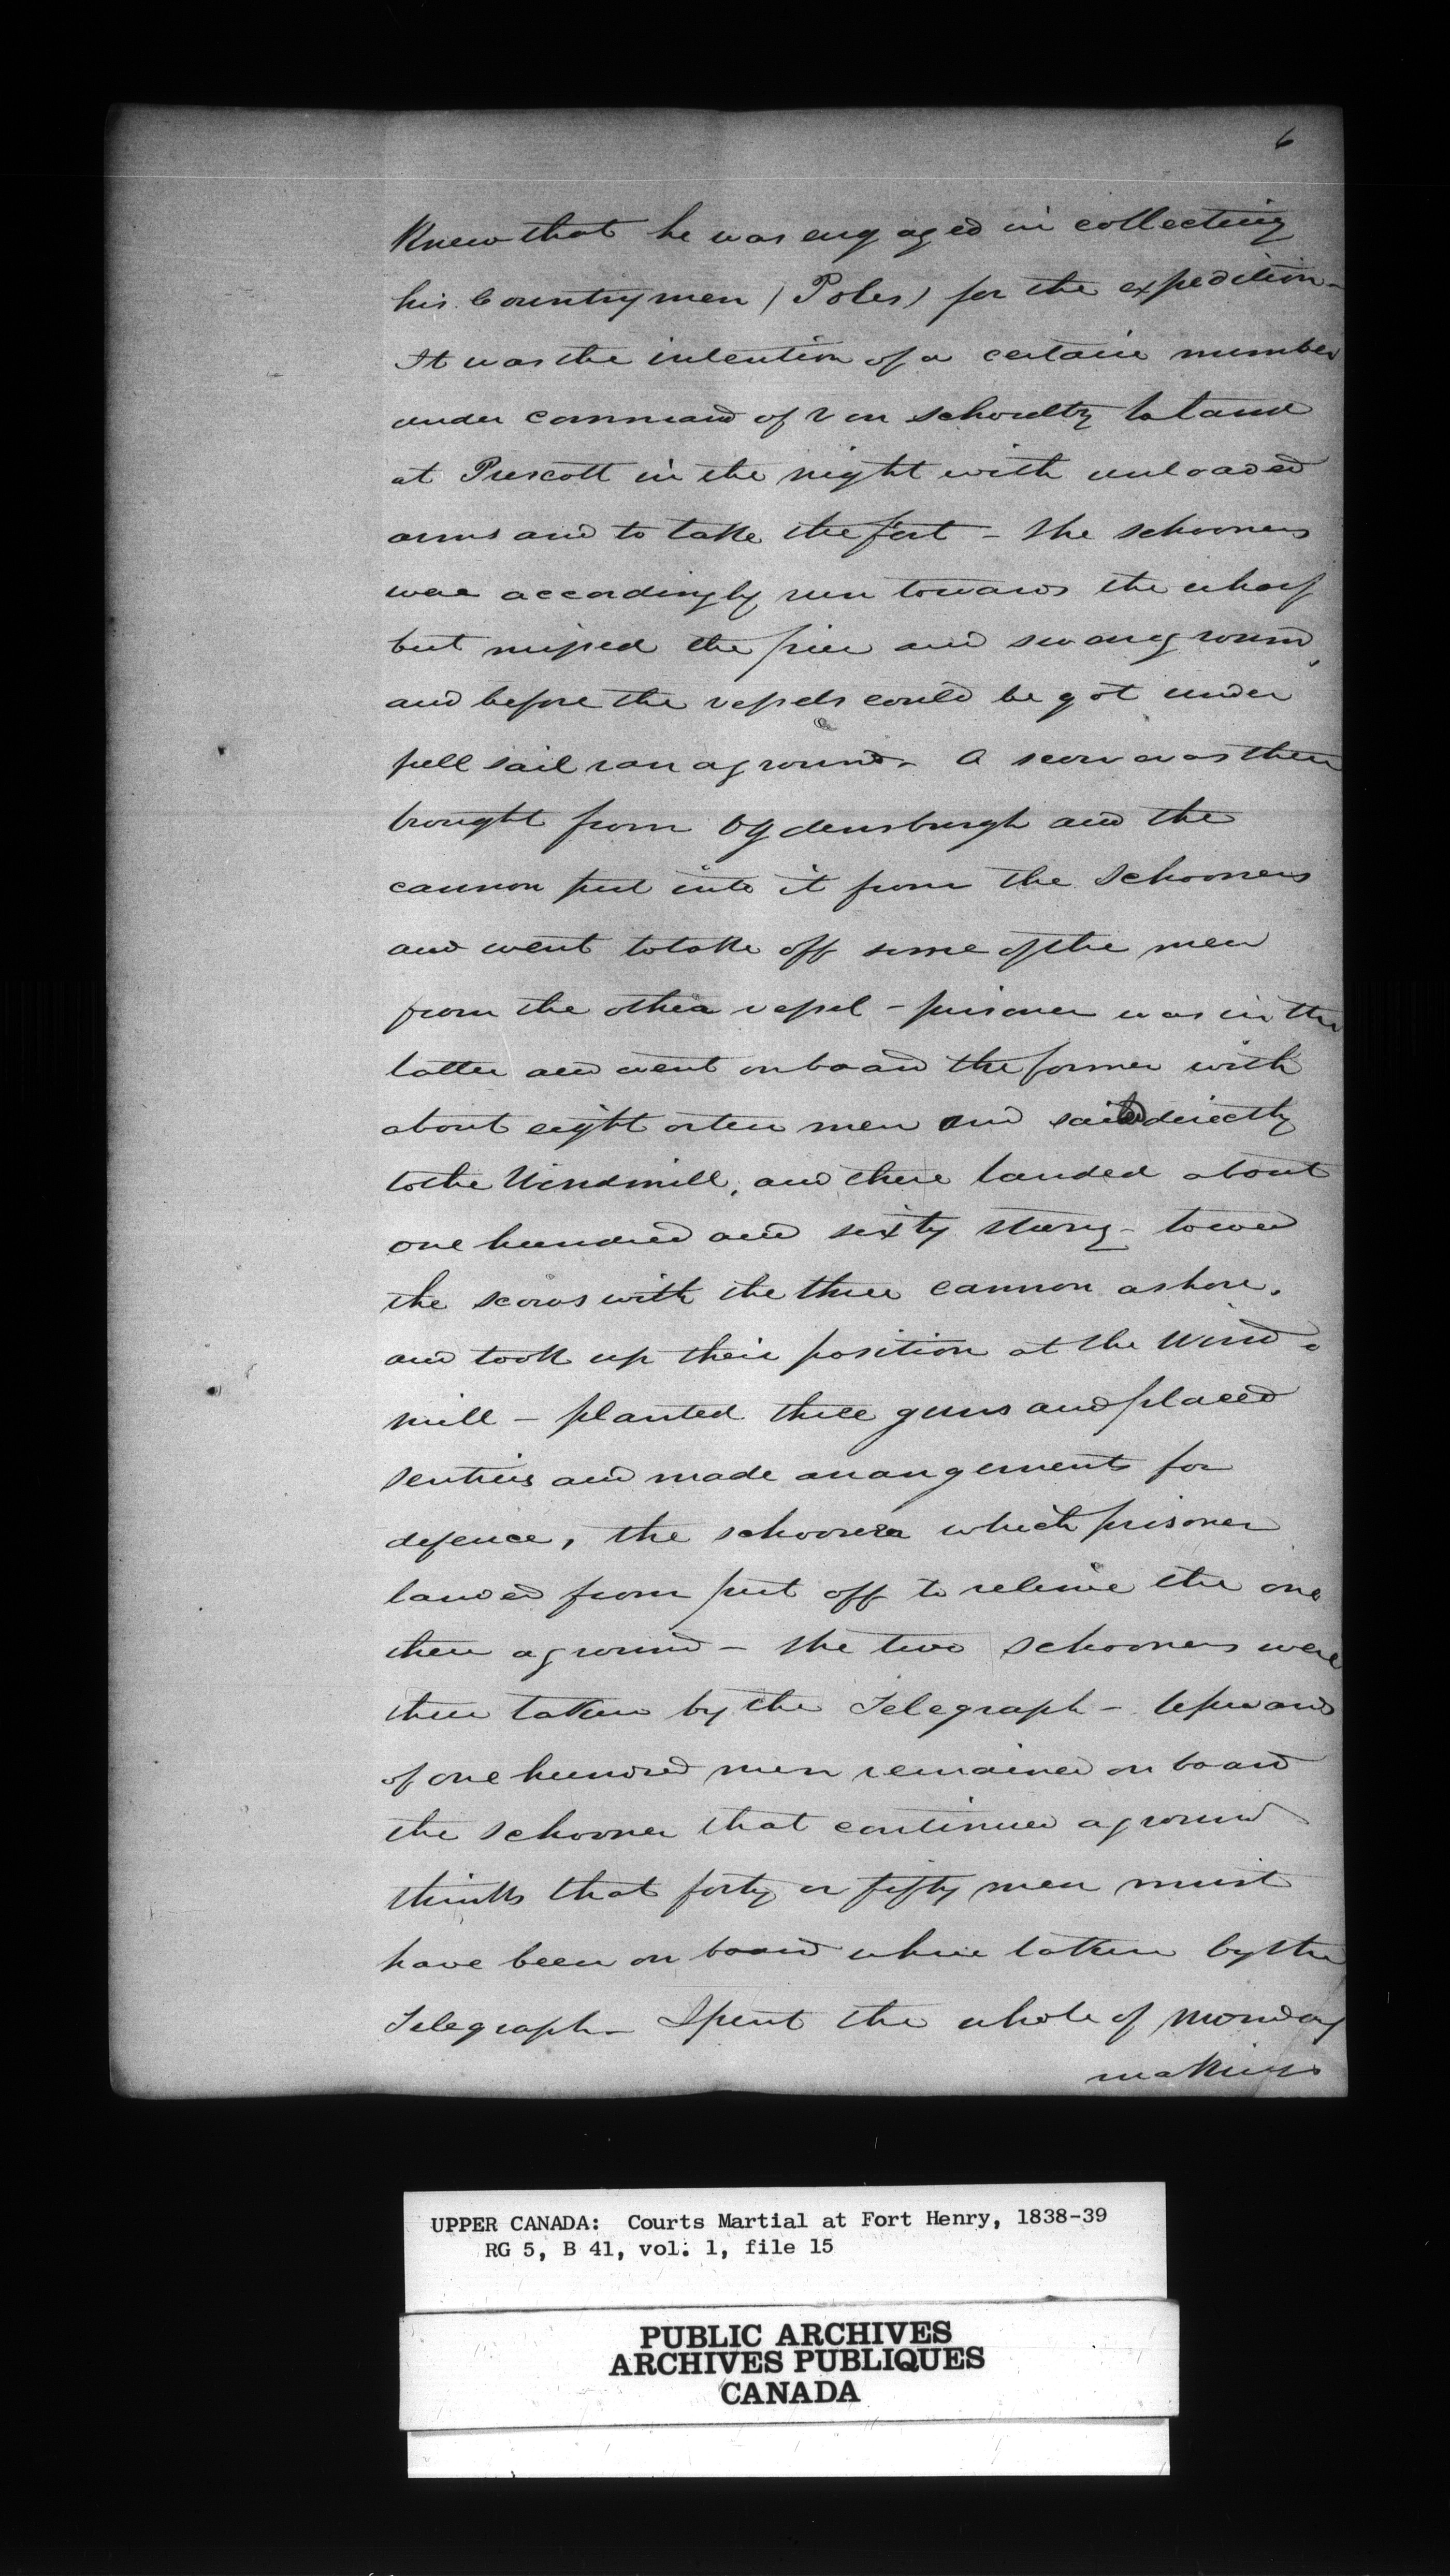 6
Knew that he was engaged in collecting
his Countrymen (Poles) for the expedition -
It was the intention of a certain number
under command of Von Schoultz to land
at Prescott in the night with unloaded
arms and to take the fort - The schooners
were accordingly run towards the wharf
but missed the pier and swang round,
and before the vessels could be got under
full sail ran aground - A scow was then
brought from Ogdensburgh and the
cannon put into it from the Schooners
and went to take off some of the men
from the other vessel - prisoner was in the
latter and went on board the former with
about eight or ten men and sailed directly
to the Windmill, and there landed about
one hundred and sixty strong - towed
the scows with the three cannon ashore,
and took up their position at the Wind-
mill - planted three guns and placed
Sentries and made arrangements for
defence, the schooner which prisoner
landed from put off to relieve the one
then aground - The two Schooners were
then taken by the Telegraph - Upwards
of one hundred men remained on board
the Schooner that continued aground
thinks that forty or fifty men must
have been on board when taken by the
Telegraph - Spent the whole of Monday
making
UPPER CANADA: Courts Martial at Fort Henry, 1838-39
RG 5, B 41, vol. 1, file 15
PUBLIC ARCHIVES
ARCHIVES PUBLIQUES
CANADA